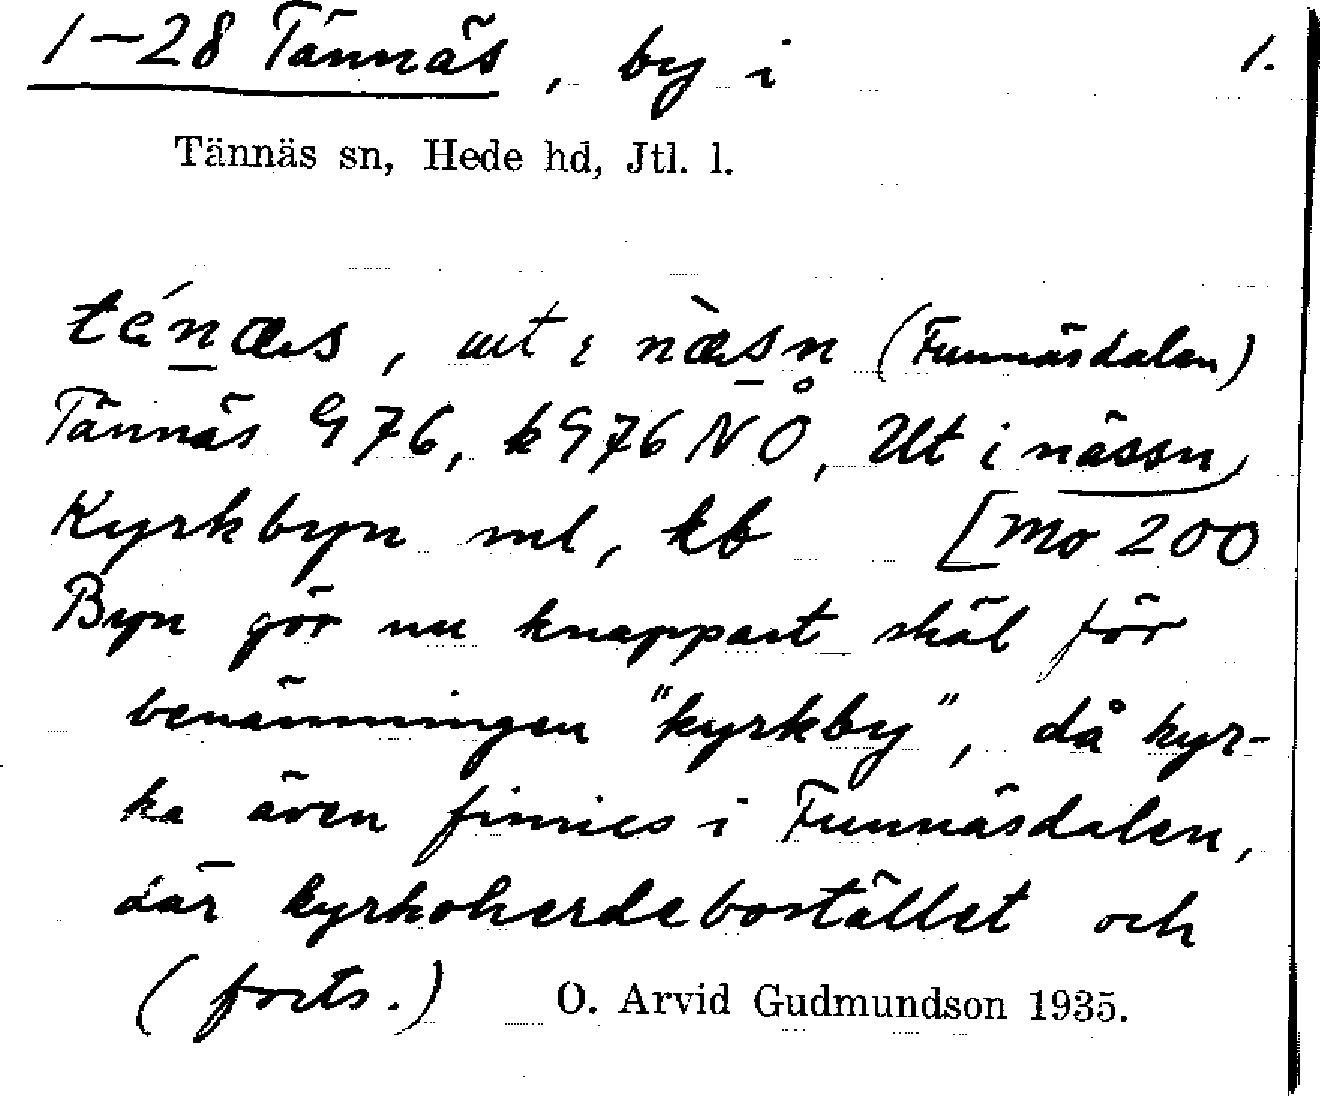 1–28 Tännäs, by i 1.
Tännäs sn, Hede hd, Jtl. l.
ténæs, ut i næ̀sn (Funnäsdalen)
Tännäs G 76, k G 76 NÖ, Ut i nässn
Kyrkbyn ml, kb [Mo 200
Byn gör nu knappast skäl för
benämningen "kyrkby", då kyr-
ka även finnes i Funnäsdalen,
där kyrkoherdebostället och
(forts.) O. Arvid Gudmundson 1935.